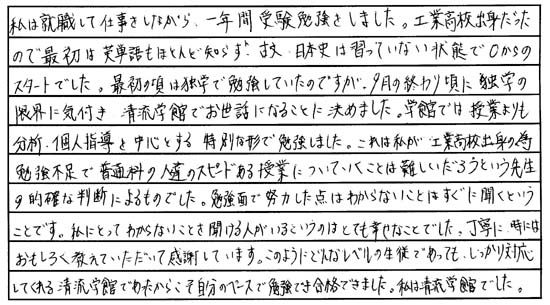 私は就職して仕事をしながら、一年間受験勉強をしました。工業高校出身だった
ので最初は英単語もほとんど知らず、古文、日本史は習っていない状態で0からの
スタートでした。最初の頃は独学で勉強していたのですが、9月の終わり頃に独学の
限界に気付き清流学館でお世話になることに決めました。学館では授業よりも
分析、個人指導を中心とする特別な形で勉強しました。これは私が工業高校出身の為
勉強不足で普通科の人達のスピードある授業についていくことは難しいだろうという先生
の的確な判断によるものでした。勉強面で努力した点はわからないことはすぐに聞くという
ことです。私にとってわからないことを聞ける人がいるというのはとても幸せなことでした。丁寧に、時には
おもしろく教えていただいて感謝しています。このようにどんなレベルの生徒であっても、しっかり対応
してくれる清流学館であったからこそ自分のペースで勉強でき合格できました。私は清流学館でした。